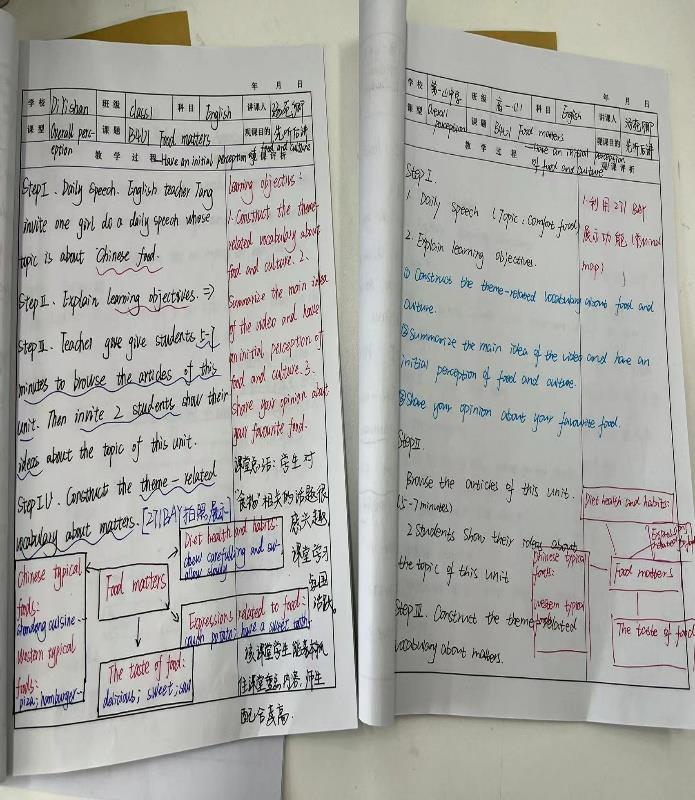 年 月 日
学校 DiYishan 班级 class1 科目 English 讲课人
课型 Overall perception 课题 B4U1 Food matters 观课目的 先听后讲
教学过程 —Have an initial perception of food and culture 观课评析
Step I . Daily speech. English teacher Tang
invite one girl do a daily speech whose
topic is about Chinese food.
Step II. Explain learning objectives. ⇒
Step III. Teacher give give students 5-7
minutes to browse the articles of this
unit. Then invite 2 students show their
ideas about the topic of this unit.
Step IV. Construct the theme-related
vocabulary about matters. [271BAY拍照展示]
Chinese typical
foods:
shandong cuisine
Western typical
foods:
pizza; hamburger
Food matters
Diet health and habits:
chew carefulling and swallow slowly
Expressions related to food:
couch potato; have a sweet tooth
The taste of food:
delicious; sweet; sour
learning objectives:
1. Construct the theme-
related vocabulary about
food and culture. 2.
Summarize the main idea
of the video and have
an initial perception of
food and culture. 3.
share your opinion about
your favourite food.
学生对
"食物"相关的话题很
感兴趣,
课堂学习
氛围
浓。
该课堂学生能
住课堂重点内容,师生
配合度高.
年 月 日
学校 第一山中学 班级 高一(1) 科目 English 讲课人
课型 Overall perception 课题 B4U1 Food matters 观课目的 先听后讲
教学过程 —Have an initial perception of food and culture 观课评析
Step I.
1. Daily Speech (Topic: Comfort food)
2. Explain learning objectives.
① Construct the theme-related vocabulary about food and
culture.
② Summarize the main idea of the video and have an
initial perception of food and culture.
③ Share your opinion about your favourite food.
Step II.
Browse the articles of this unit.
(5-7 minutes)
2 Students show their ideas about
the topic of this unit
Step III. Construct the theme-related
vocabulary about matters.
1.利用271BAY
展示功能
map)
Diet health and habits:
Chinese typical
foods:
western typical
foods:
Food matters
The taste of food